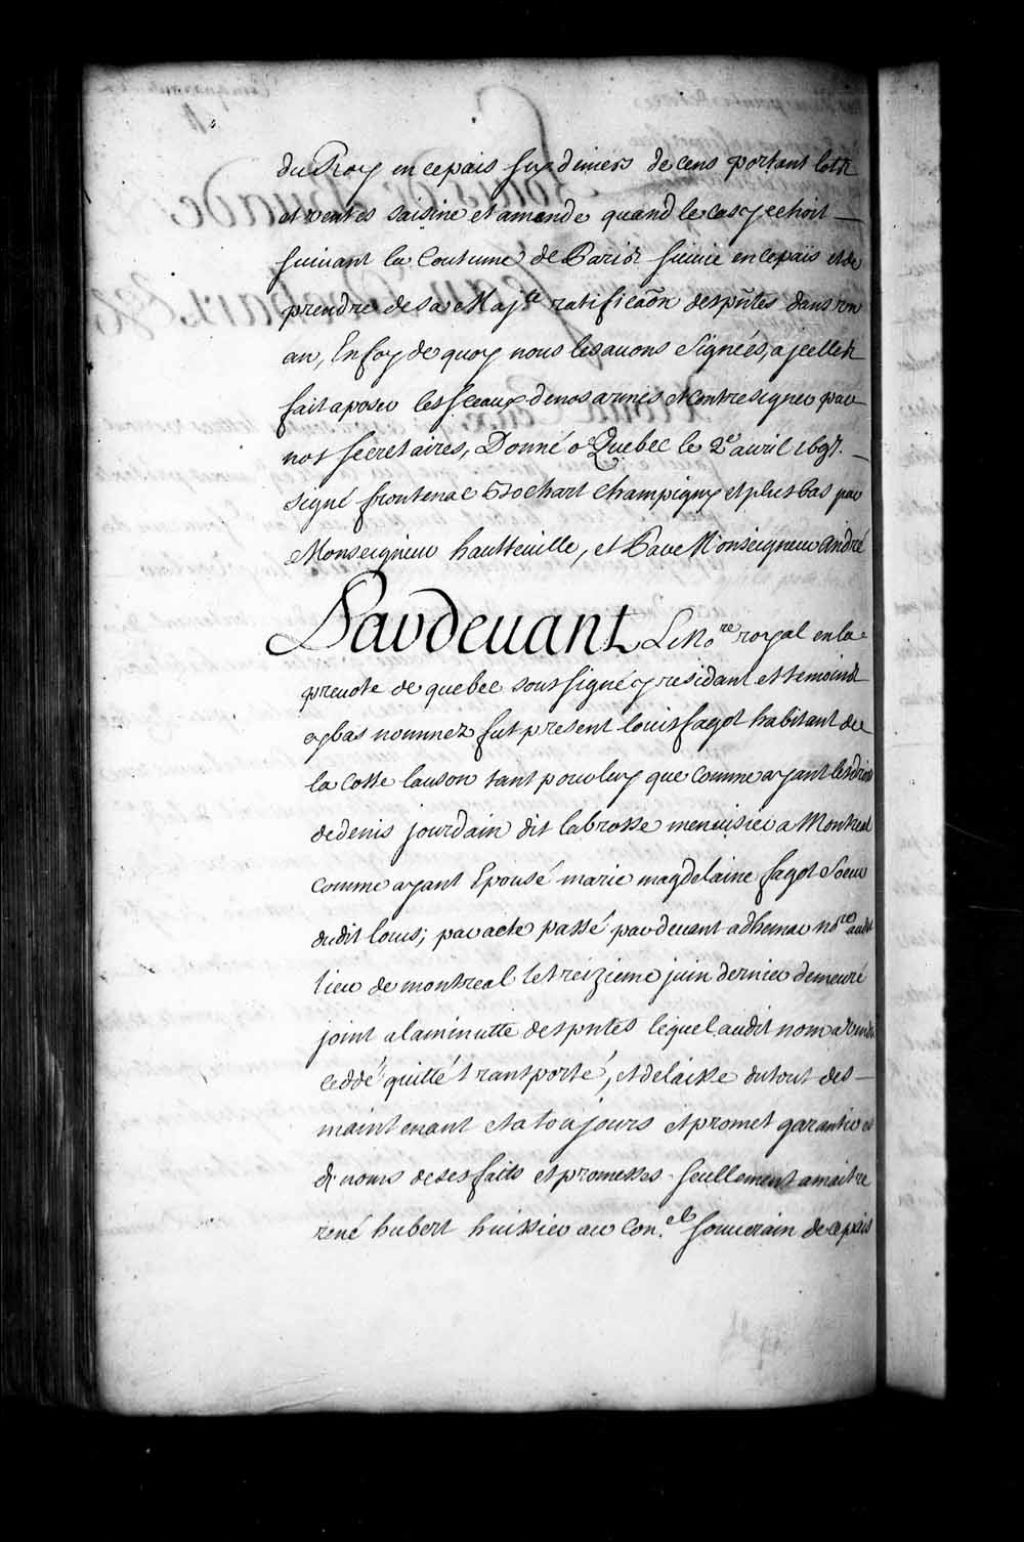 du Roy en ce païs six deniers de cens portant lots
et ventes saisine et amende quand le cas y echoit
suivant la Coutume de Paris suivie en ce païs et de
prendre de sa Maj.te ratificaõn des pñtes dans un
an, En foy de quoy nous les avons signées, a jcelles
fait aposer les sceaux de nos armes et contresigner par
nos secretaires, Donné a Quebec le 2e avril 1697.
signé frontenac Bochart Champigny et plus bas par
Monseigneur hautteville, et Par Monseigneur André
Pardevant Le No.re royal en la
prevote de quebec soussigné y residant et temoins
cy bas nommez fut present louis fagot habitant de
la coste lauson tant pour luy que comme ayant les droits
de denis jourdain dit labrosse menuisier a Montreal
comme ayant Epousé marie magdelaine fagot soeur
dudit louis; par acte passé pardevant adhemar no.re audit
lieu de montreal le treizieme juin dernier demeuré
joint a la minutte des pntes lequel audit nom a vendu
ceddé quitté transporté, et delaisse du tout des
maintenant et a toujours et promet garantir
de noms de ses faits et promesses seullement a maitre
rené hubert huissier au Con.el souverain de ce païs